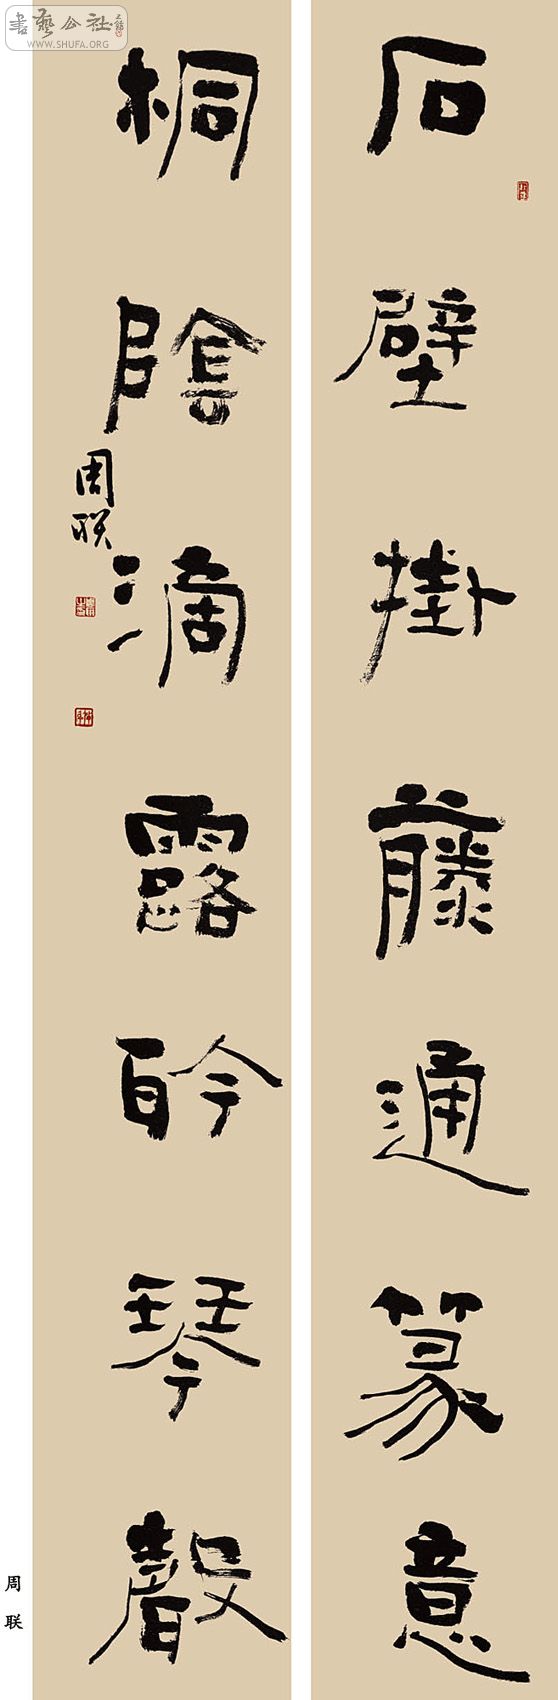 書藝公社
WWW.SHUFA.ORG
石壁掛藤通篆意
桐陰滴露聆琴聲
周联
周联